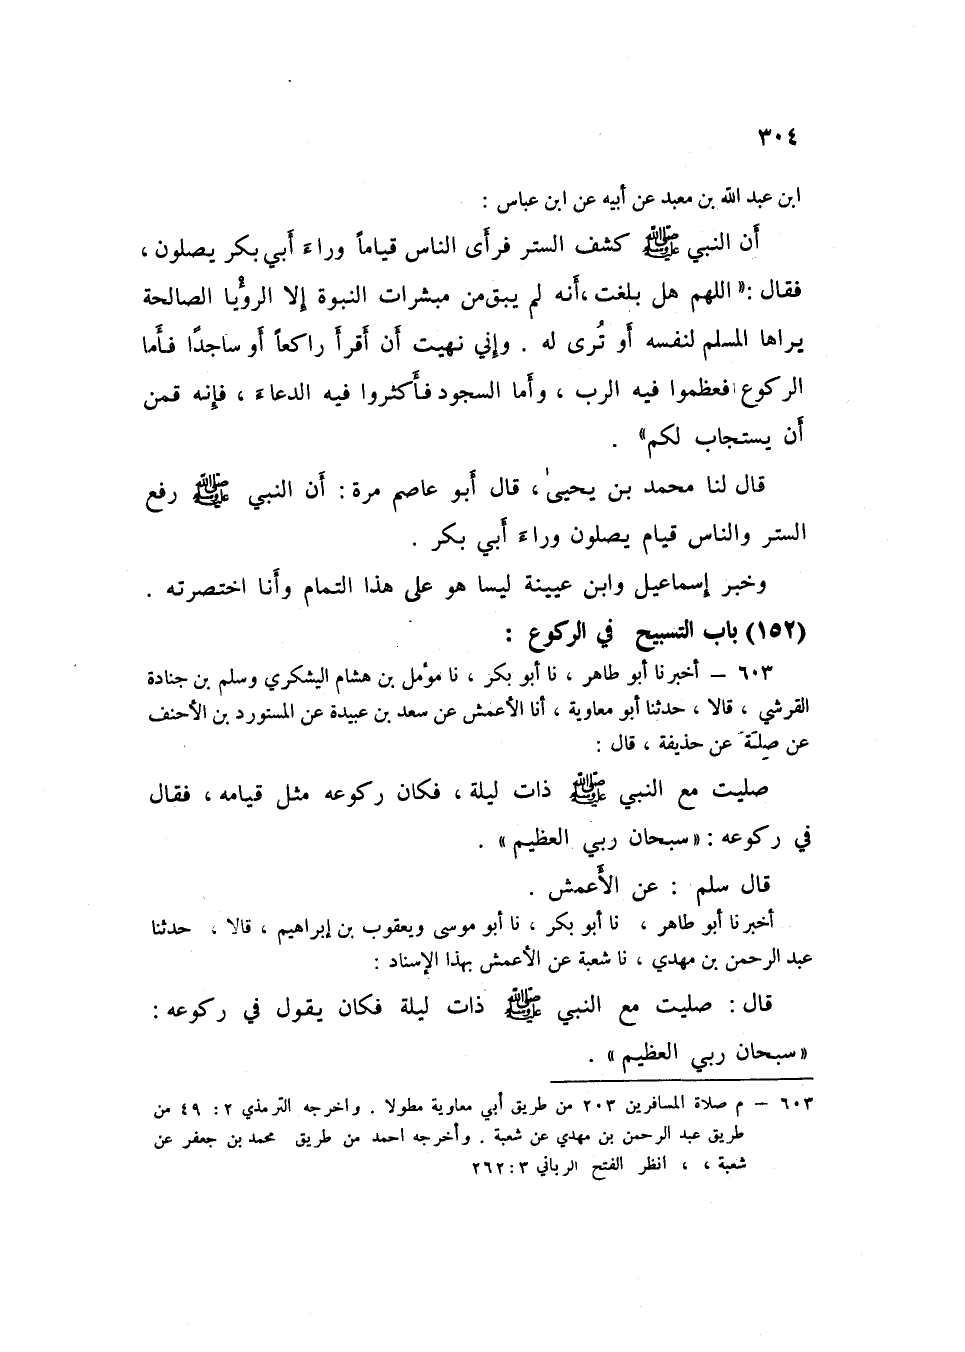 ٣٠٤
ابن عبد الله بن معبد عن أبيه عن ابن عباس :
أن النبي ﷺ كشف الستر فرأى الناس قياماً وراءَ أبي بكر يصلون ،
فقال :« اللهم هل بلغت ،أنه لم يبق من مبشرات النبوة إلا الرؤيا الصالحة
يراها المسلم لنفسه أو تُرى له . وإني نهيت أن أقرأ راكعاً أو ساجدًا فأما
الركوع فعظموا فيه الرب ، وأما السجود فأكثروا فيه الدعاءَ ، فإنه قمن
أن يستجاب لكم» .
قال لنا محمد بن يحيىٰ ، قال أبو عاصم مرة : أن النبي ﷺ رفع
الستر والناس قيام يصلون وراءَ أبي بكر .
وخبر إسماعيل وابن عيينة ليسا هو على هذا التمام وأنا اختصرته .
(١٥٢) باب التسبيح في الركوع :
٦٠٣ – أخبرنا أبو طاهر ، نا أبو بكر ، نا مؤمل بن هشام اليشكري وسلم بن جنادة
القرشي ، قالا ، حدثنا أبو معاوية ، أنا الأعمش عن سعد بن عبيدة عن المستورد بن الأحنف
عن صِلَة عن حذيفة ، قال :
صليت مع النبي ﷺ ذات ليلة ، فكان ركوعه مثل قيامه ، فقال
في ركوعه : «سبحان ربي العظيم» .
قال سلم : عن الأعمش .
أخبرنا أبو طاهر ، نا أبو بكر ، نا أبو موسى ويعقوب بن إبراهيم ، قالا ، حدثنا
عبد الرحمن بن مهدي ، نا شعبة عن الأعمش بهذا الإسناد :
قال : صليت مع النبي ﷺ ذات ليلة فكان يقول في ركوعه :
«سبحان ربي العظيم» .
٦٠٣ – م صلاة المسافرين ٢٠٣ من طريق أبي معاوية مطولا . واخرجه الترمذي ٢ : ٤٩ من
طريق عبد الرحمن بن مهدي عن شعبة . وأخرجه احمد من طريق محمد بن جعفر عن
شعبة ، ، انظر الفتح الرباني ٣ : ٢٦٢